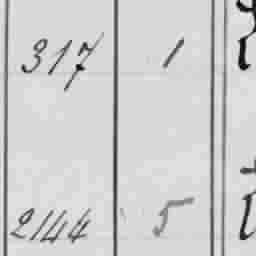 317 1
2144 5